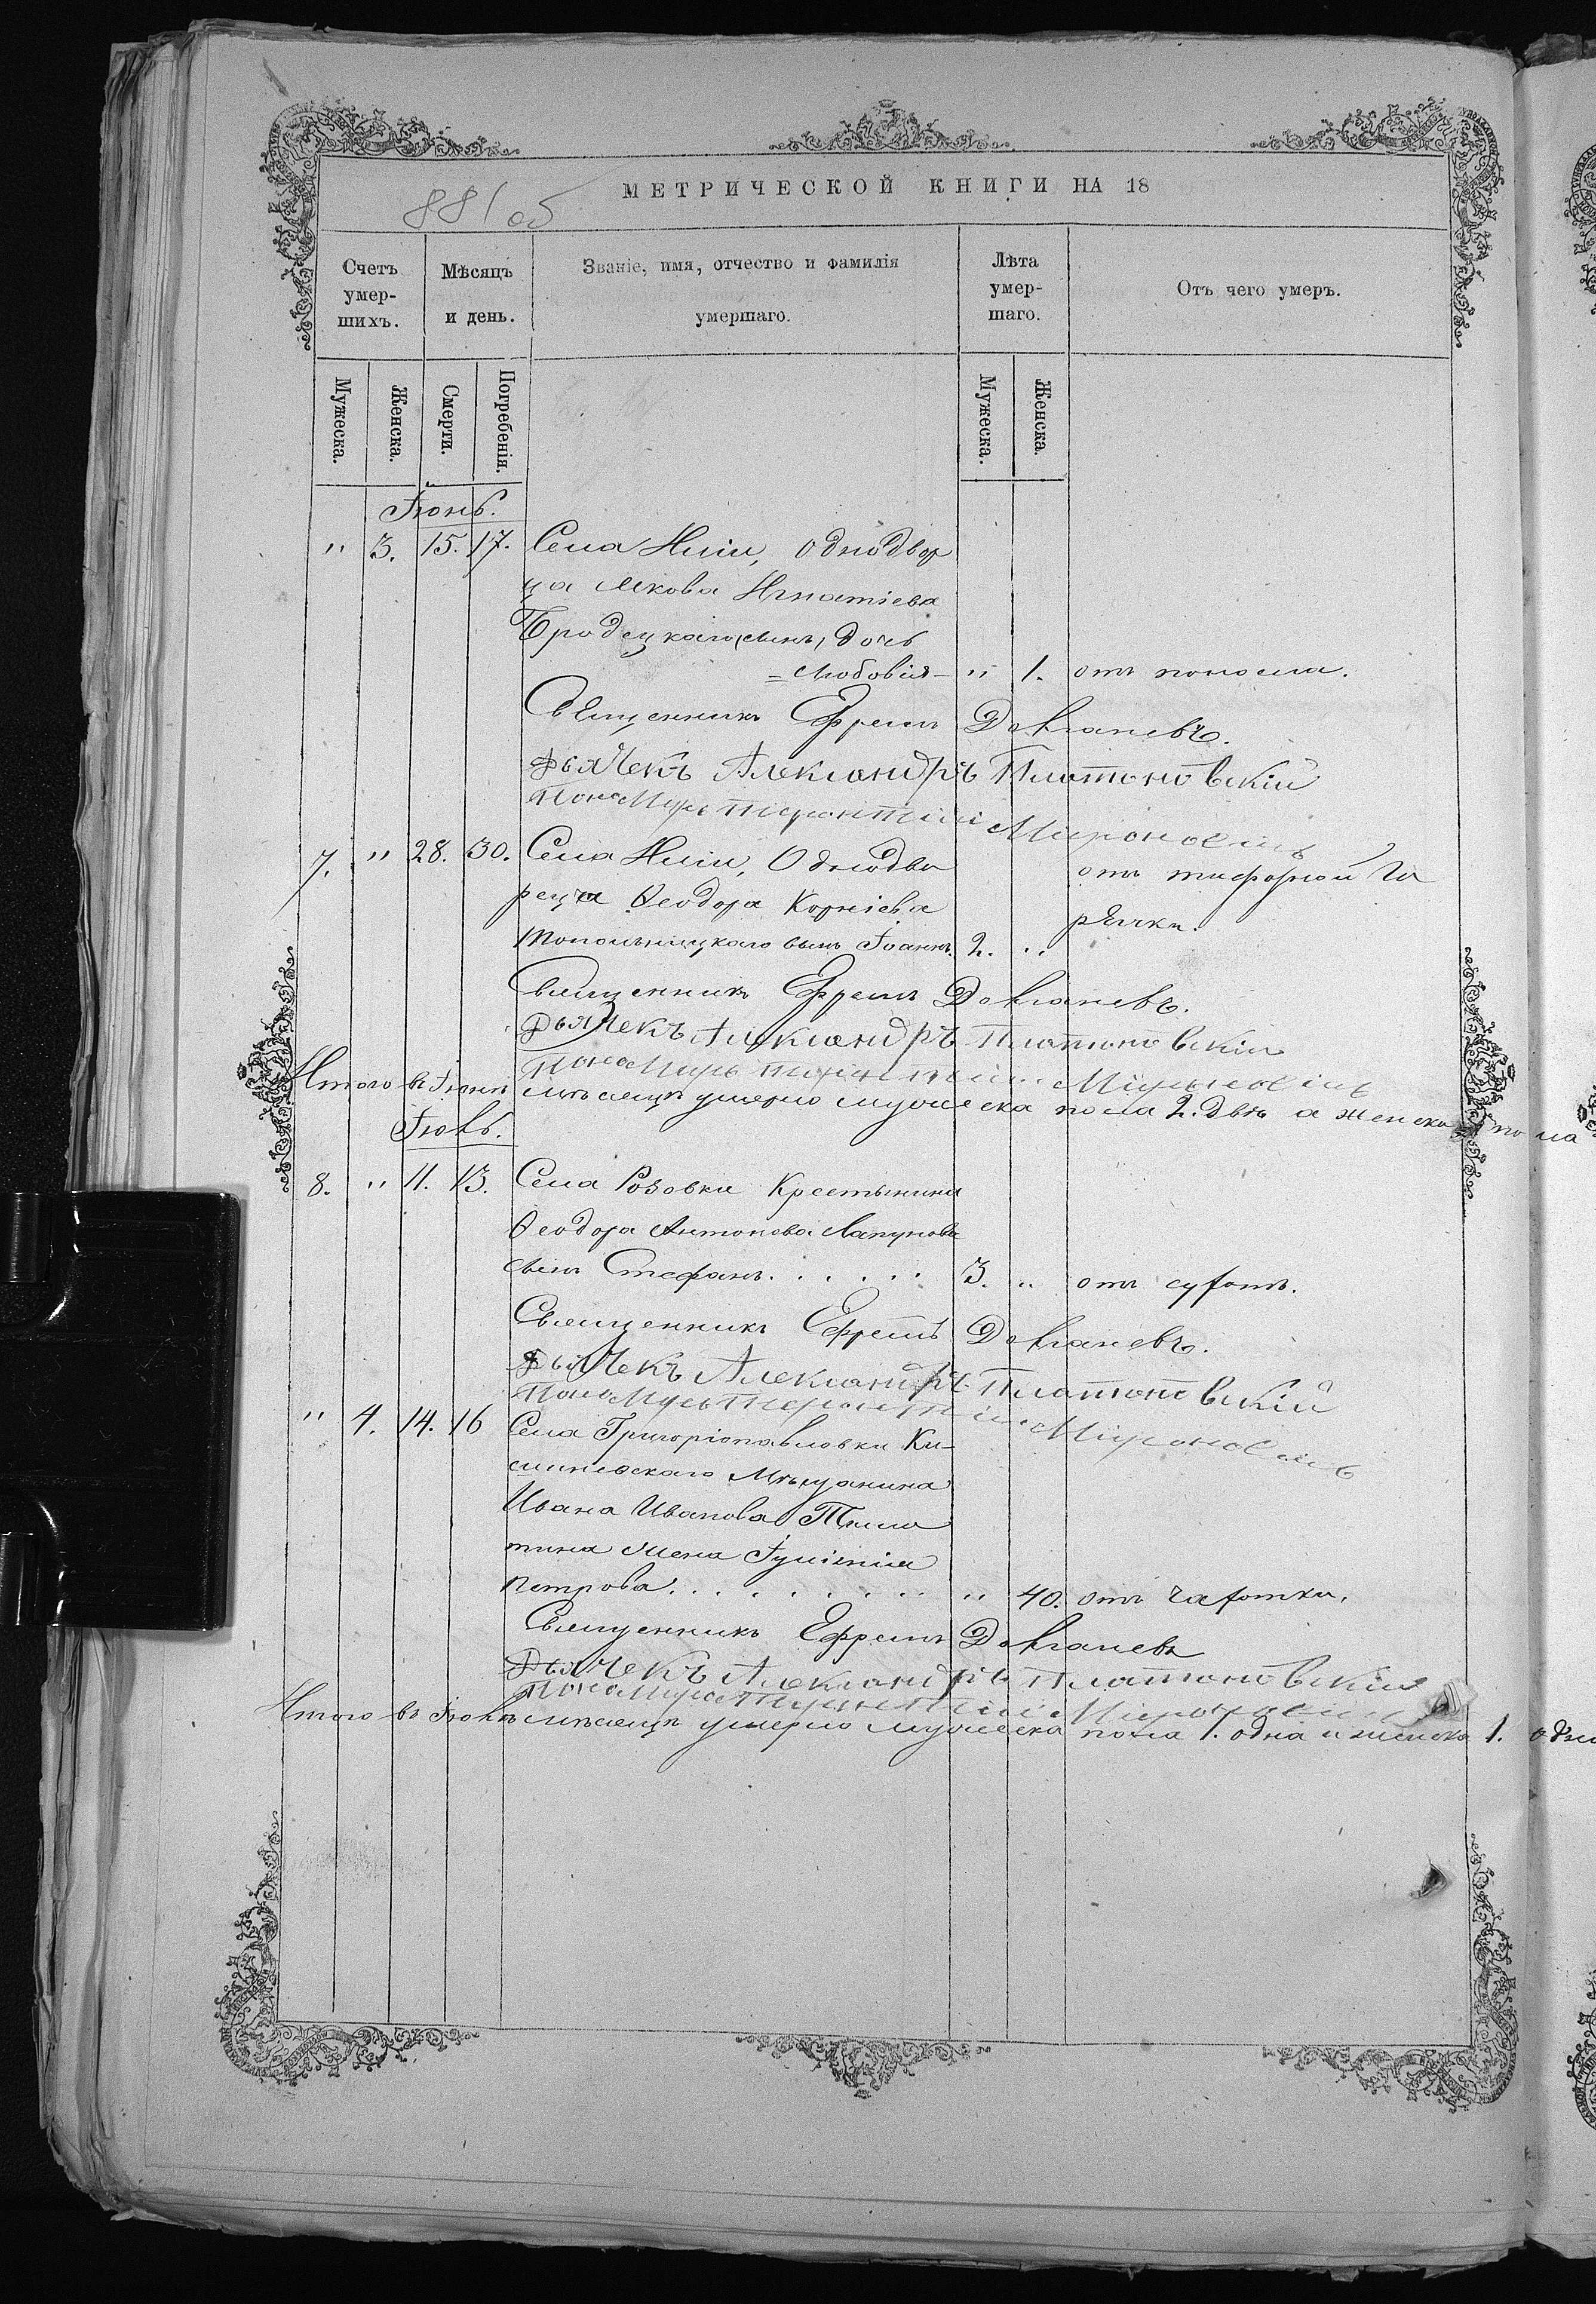 МЕТРИЧЕСКОЙ КНИГИ НА 18
881 об
Счетъ умер-шихъ.
Мѣсяцъ и день.
Званіе, имя, отчество и фамилія умершаго.
Лѣта умер-шаго.
Отъ чего умеръ.
Мужеска.
Женска.
Смерти.
Погребенія.
Мужеска.
Женска.
Іюнь.
" 3. 15. 17. Села Ніги, Однодвор
ца Якова Игнатіева
Бродецкаго дочь
= Любовія - " 1. отъ поноса.
Священникъ Ефремъ
Дьячекъ Александръ Платоновскій
Пономарь Терентій Мироновичъ
7. " 28. 30. Села Ніги, Однодво
рца Ѳеодора Корніева
отъ тифозной го
рячки.
Топольницкаго сынъ Іоаннъ. 2. "
Священникъ Ефремъ
Дьячекъ Александръ Платоновскій
Пономарь Терентій Мироновичъ
Итого въ Іюнѣ мѣсяцѣ умерло мужеска пола 2. двѣ а женска пола
Іюль.
8. " 11. 13. Села Розовки Крестьянина
Ѳеодора Антонова Лапунова
сынъ Стефанъ. . . . . . 3. " отъ
Священникъ Ефремъ
Дьячекъ Александръ Платоновскій
Пономарь Терентій Мироновичъ
" 4. 14. 16 Села Григоріопавловки Ки-
шиневскаго Мѣщанина
Ивана Иванова
тина жена
Петрова. . . . . . . . . " 40. отъ чахотки.
Священникъ Ефремъ
Дьячекъ Александръ Платоновскій
Пономарь Терентій Мироновичъ
Итого въ Іюлѣ мѣсяцѣ умерло мужеска пола 1. одна и женска 1.